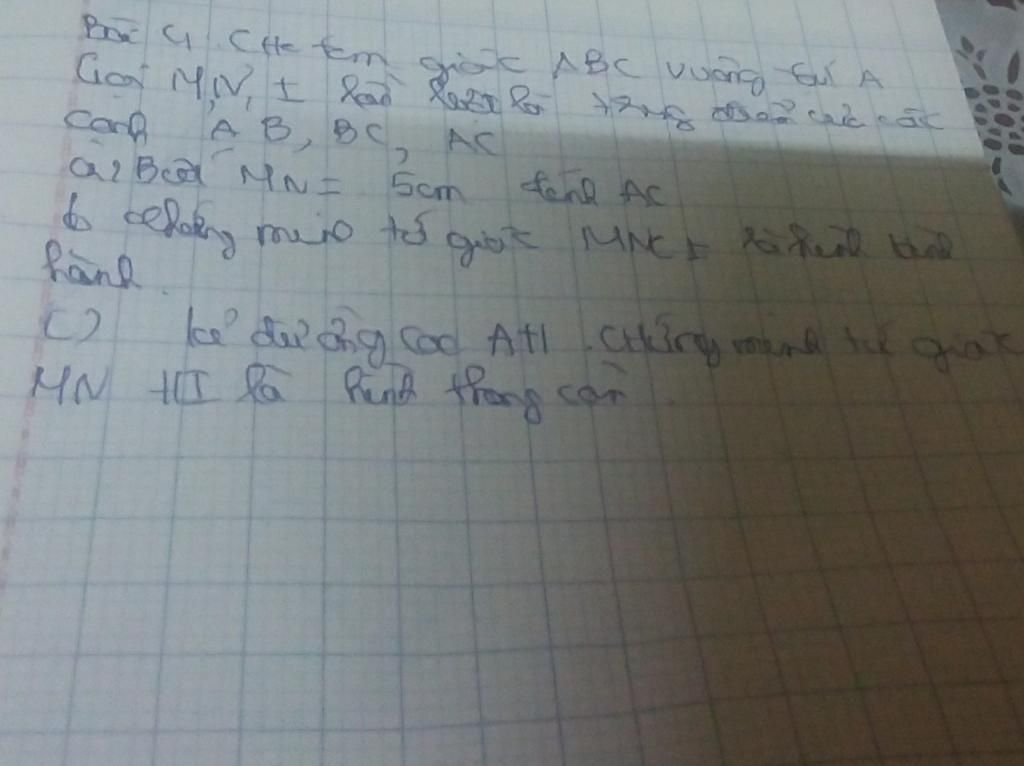 Bài 4 Cho tam giác ABC vuông tại A
Gọi M, N, I lần lượt là trung điểm của các
cạnh AB, BC, AC
a, Biết MN = 5cm tính AC
b chứng minh tứ giác MNCI là hình bình
hành.
c) kẻ đường cao AH. Chứng minh tứ giác
MNHI là hình thang cân.